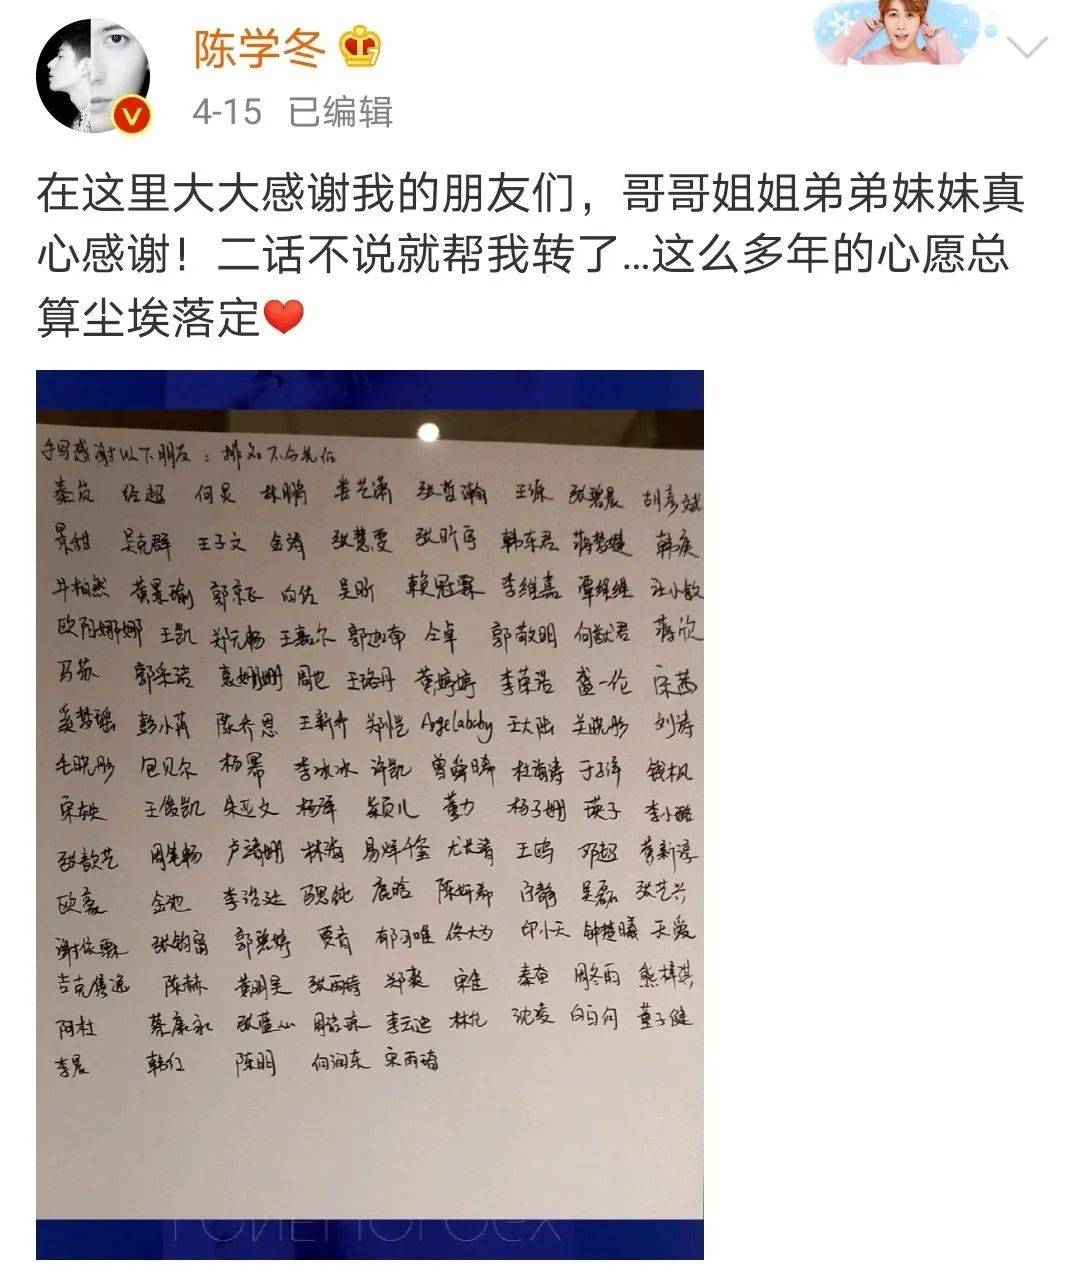 陈学冬
4-15 已编辑
在这里大大感谢我的朋友们，哥哥姐姐弟弟妹妹真
心感谢！二话不说就帮我转了...这么多年的心愿总
算尘埃落定❤
手写感谢以下朋友：排名不分先后
秦岚 任超 何炅 林鹏 娄艺潇 张哲瀚 王源 张碧晨 胡彦斌
景甜 吴克群 王子文 金涛 张慧雯 张昕宇 韩东君 蒋梦婕 韩庚
井柏然 黄景瑜 郭京飞 向佐 吴昕 赖冠霖 李维嘉 覃继维 汪小敏
欧阳娜娜 王凯 郑元畅 王嘉尔 郭迦南 仝卓 郭敬明 何猷君 蒋欣
马苏 郭采洁 袁姗姗 周也 王珞丹 黄婷婷 李荣浩 盛一伦 宋茜
奚梦瑶 彭小苒 陈乔恩 王新乔 郑恺 Angelababy 王大陆 关晓彤 刘涛
毛晓彤 包贝尔 杨幂 李冰冰 许凯 曾舜晞 杜海涛 于子洋 钱枫
宋轶 王俊凯 朱亚文 杨洋 颖儿 董力 杨子姗 瑛子 李小璐
张歆艺 周笔畅 卢靖姗 林海 易烊千玺 尤长靖 王鸥 邓超
欧豪 金池 李治廷 马思纯 鹿晗 陈妍希 宁静 吴磊 张艺兴
谢依霖 张钧甯 郭碧婷 贾青 郁可唯 佟大为 印小天 钟楚曦 天爱
吉克隽逸 陈赫 黄明昊 张雨绮 郑爽 宋佳 秦奋 周冬雨 熊梓淇
阿杜 蔡康永 张蓝心 周洁琼 李云迪 林允 沈凌 白百何 董子健
李晨 韩红 陈明 何润东 宋雨琦